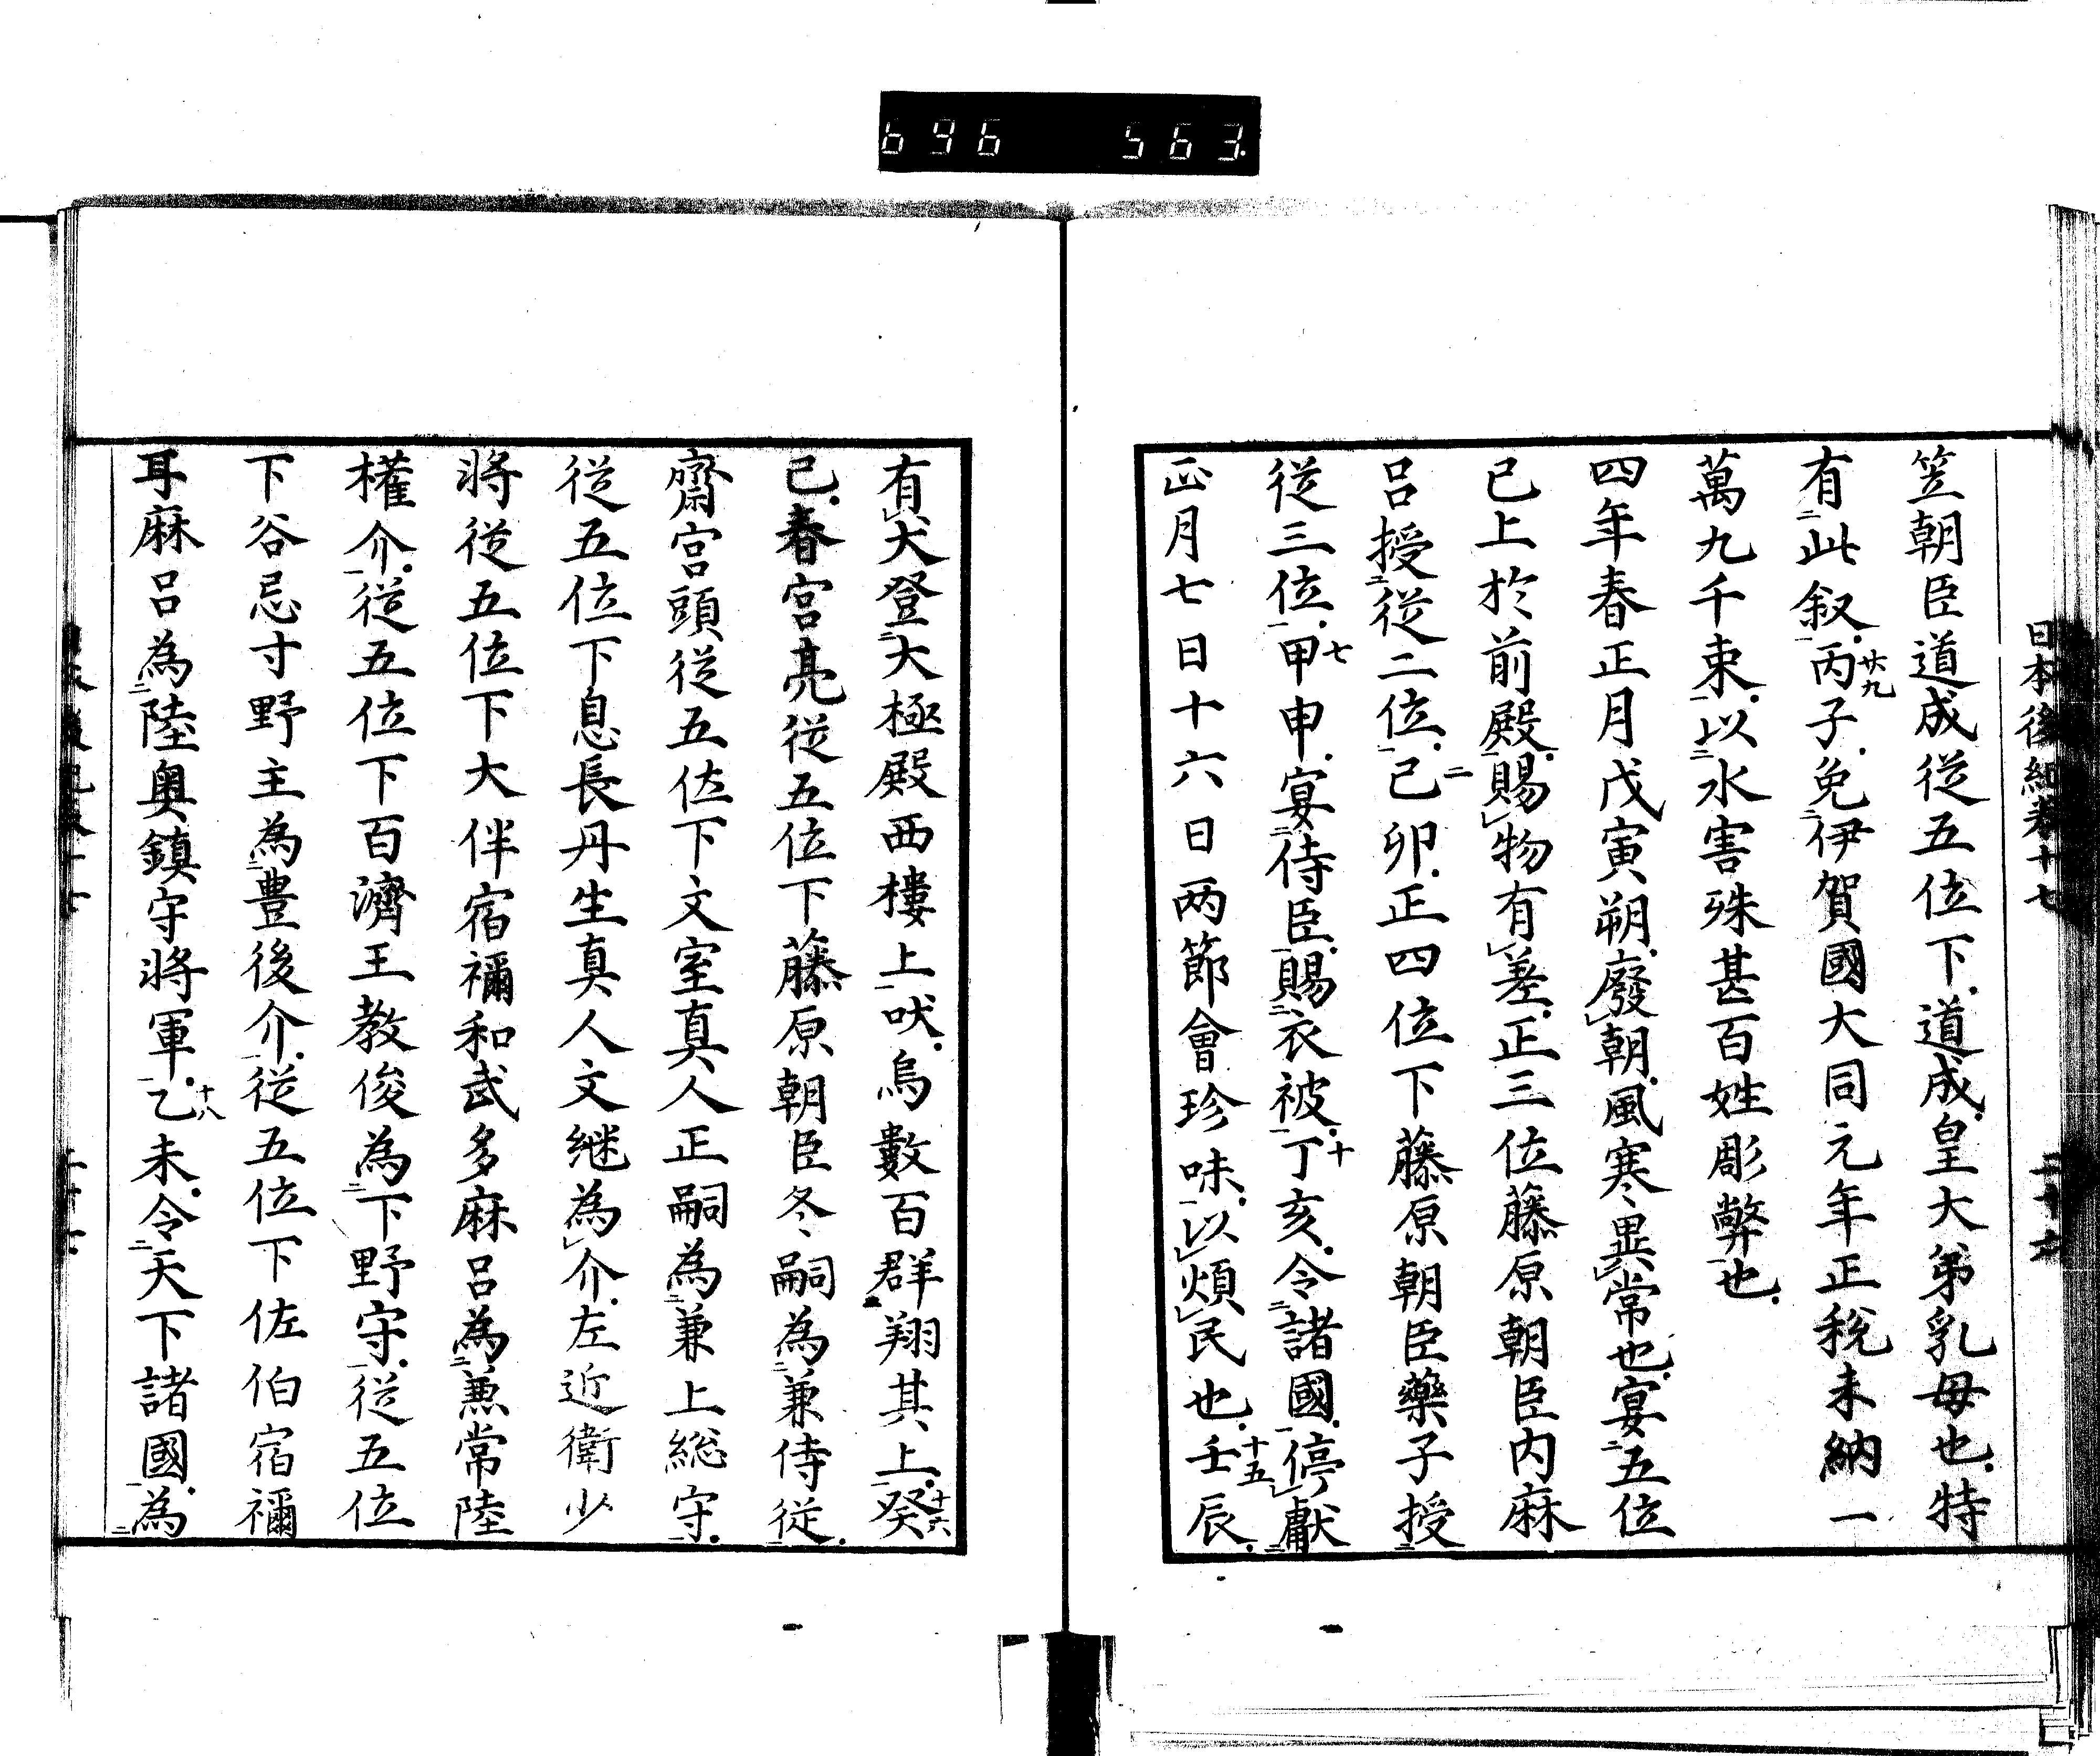 696 563
日本後紀卷十七
笠朝臣道成從五位下道成皇大弟乳母也特
有二此叙一丙子廿九免二伊賀國大同元年正税未納一
萬九千束一以二水害殊甚百姓彫弊一也
四年春正月戊寅朔廢レ朝風寒異レ常也宴二五位
已上於前殿一賜レ物有レ差正三位藤原朝臣内麻
呂授二從二位一己卯二正四位下藤原朝臣藥子授二
從三位一甲申七宴二侍臣一賜二衣被一丁亥十令二諸國一停レ獻二
正月七日十六日兩節會珍味一以レ煩レ民也壬辰十五
有レ犬登二大極殿西樓上一吠烏數百群二翔其上一癸十六
巳春宮亮從五位下藤原朝臣冬嗣為二兼侍從一
齋宮頭從五位下文室真人正嗣為二兼上総守一
從五位下息長丹生真人文継為レ介左近衛少
將從五位下大伴宿禰和武多麻呂為二兼常陸
權介一從五位下百濟王教俊為二下野守一從五位
下谷忌寸野主為二豊後介一從五位下佐伯宿禰
耳麻呂為二陸奥鎮守將軍一乙未十八令二天下諸國一為二